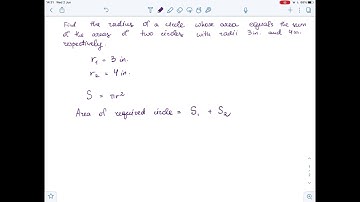 14:31 Wed 2 Jun
Find the radius of a circle whose area equals the sum
of the areas of two circles with radii 3in. and 4in.
respectively.
r₁ = 3 in.
r₂ = 4 in.
S = πr²
Area of required circle = S₁ + S₂